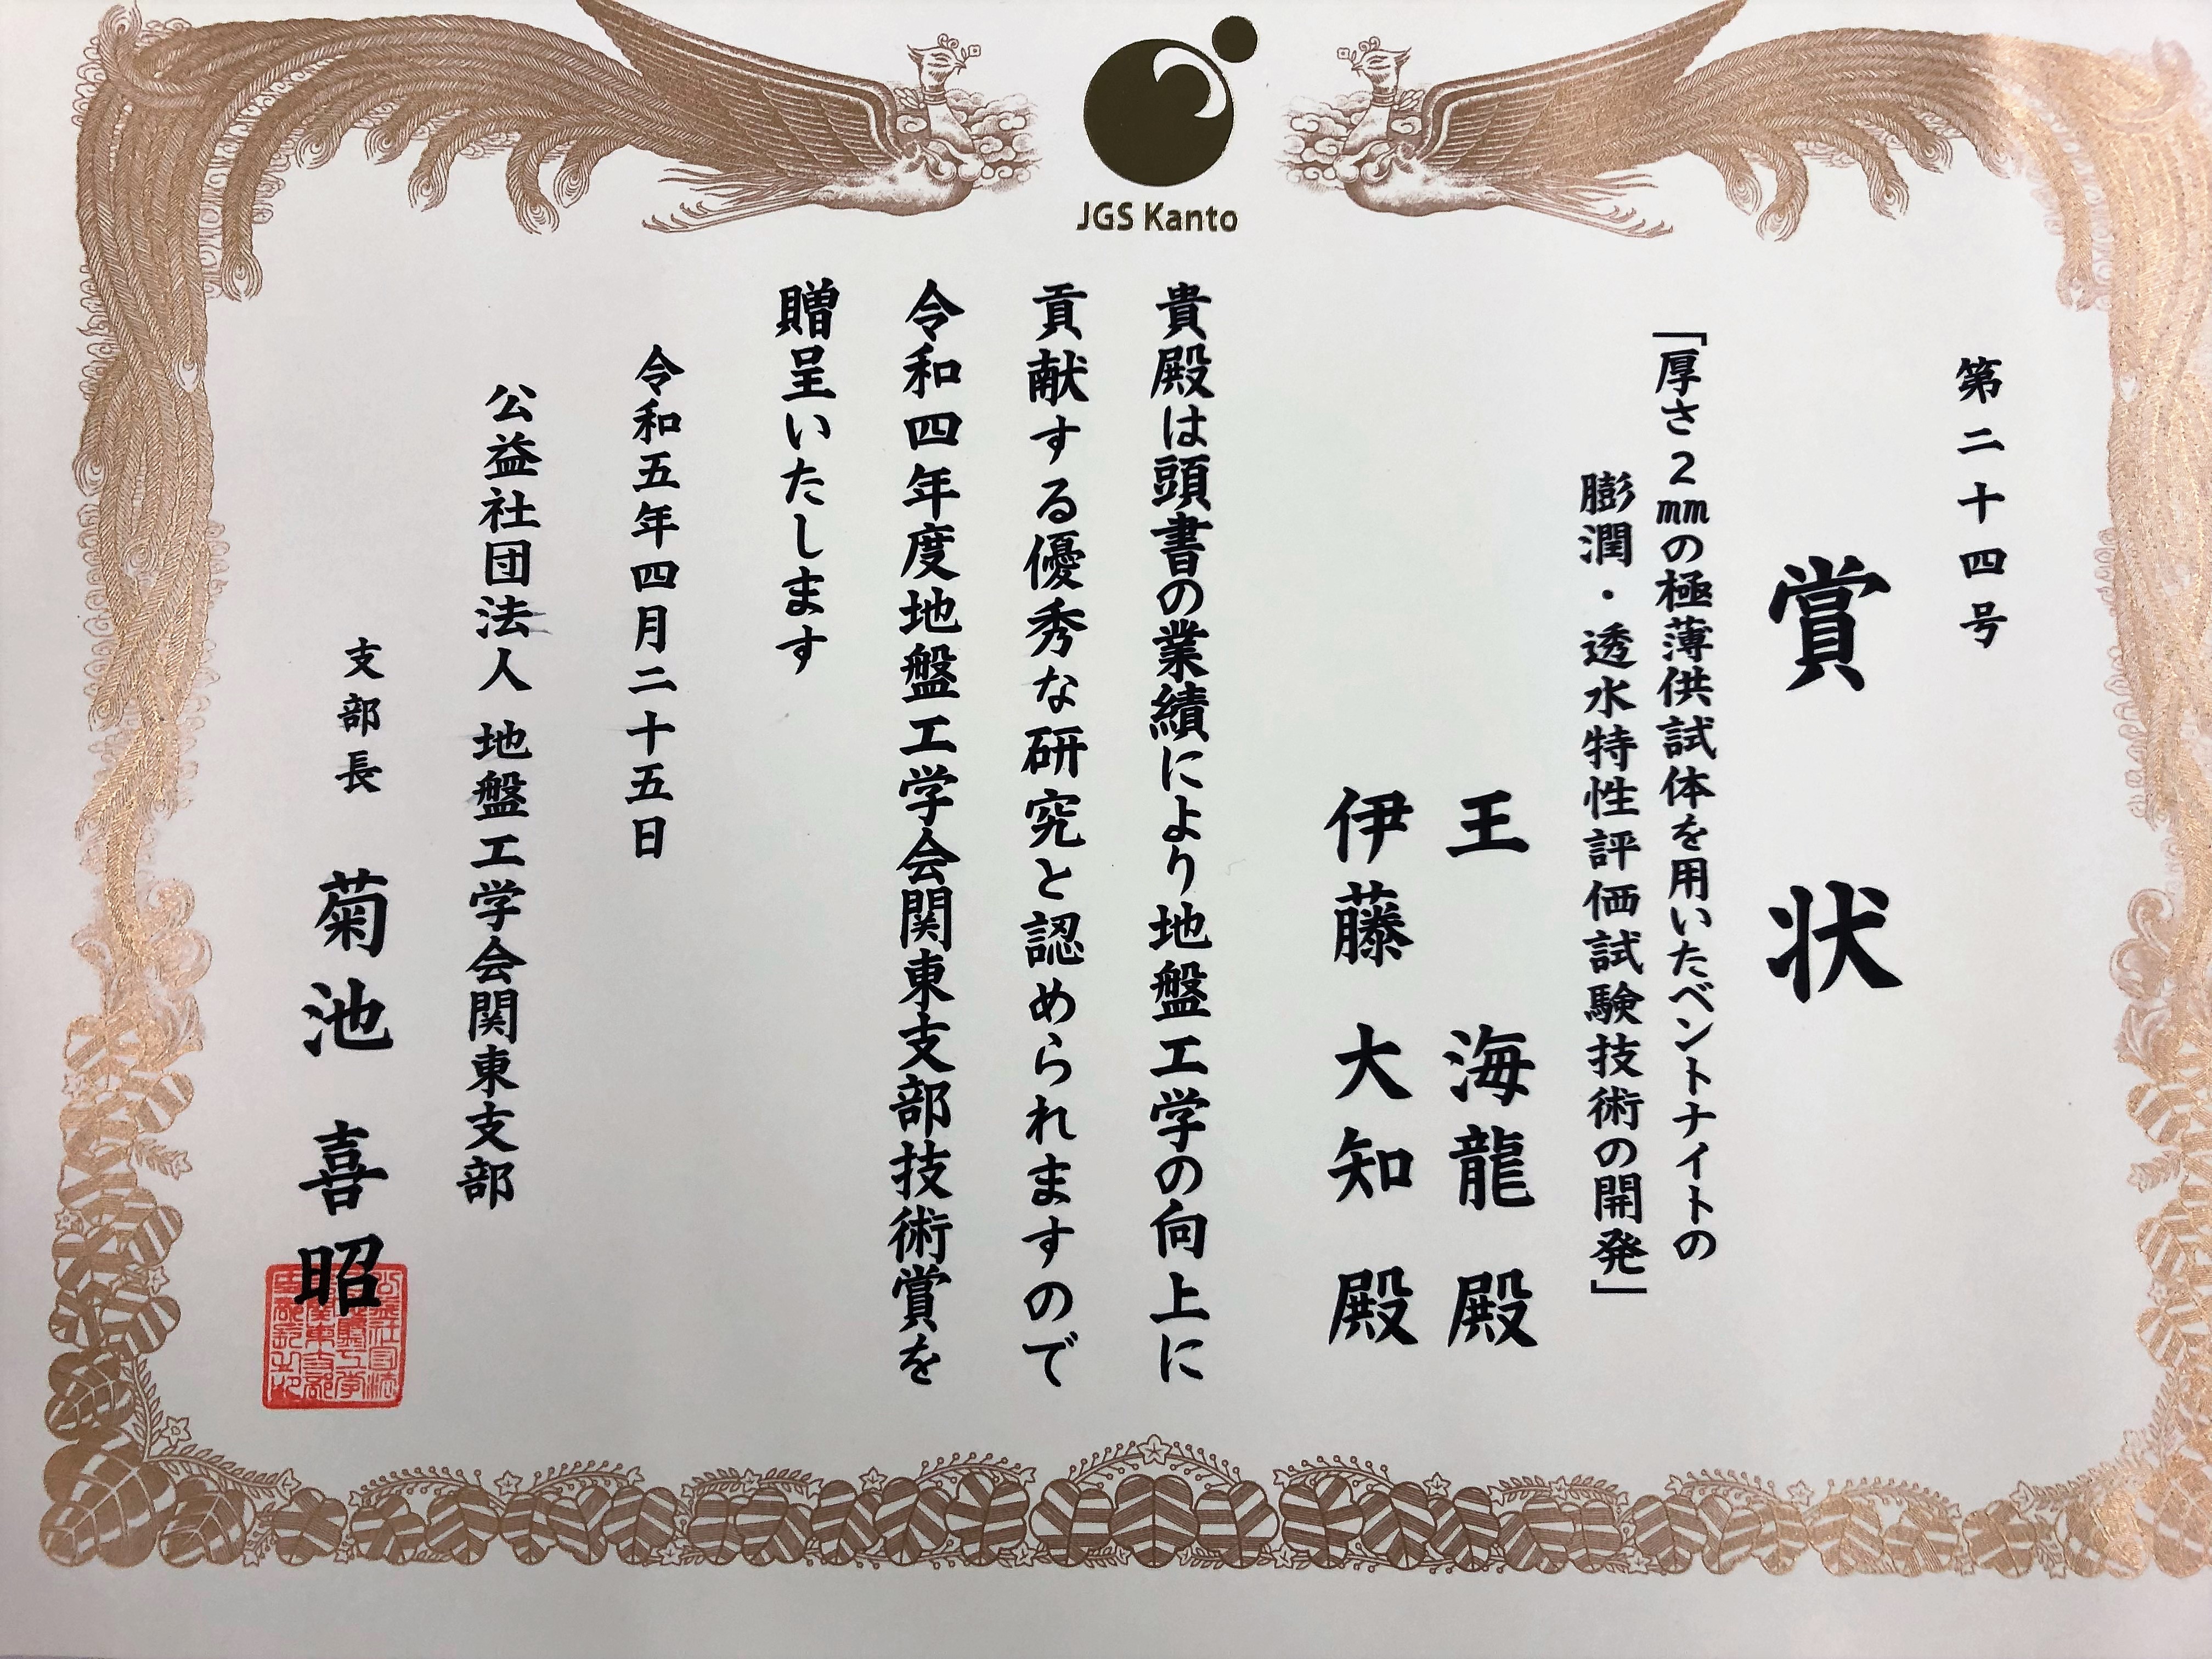 JGS Kanto
第二十四号
賞状
「厚さ2mmの極薄供試体を用いたベントナイトの
膨潤・透水特性評価試験技術の開発」
王 海龍 殿
伊藤 大知 殿
貴殿は頭書の業績により地盤工学の向上に
貢献する優秀な研究と認められますので
令和四年度地盤工学会関東支部技術賞を
贈呈いたします
令和五年四月二十五日
公益社団法人 地盤工学会関東支部
支部長 菊池 喜昭